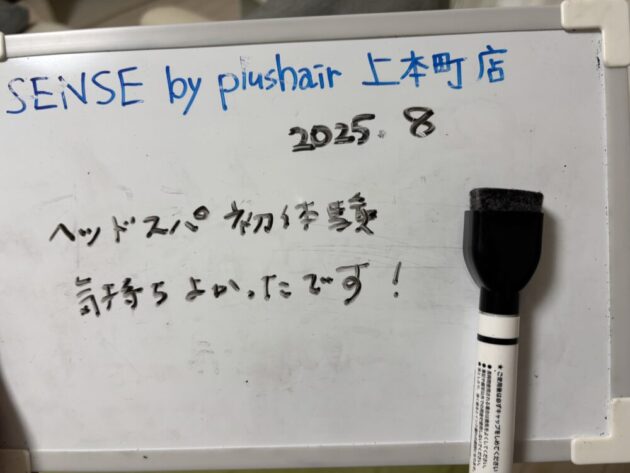 SENSE by plushair 上本町店
2025.8
ヘッドスパ 初体験
気持ちよかったです!